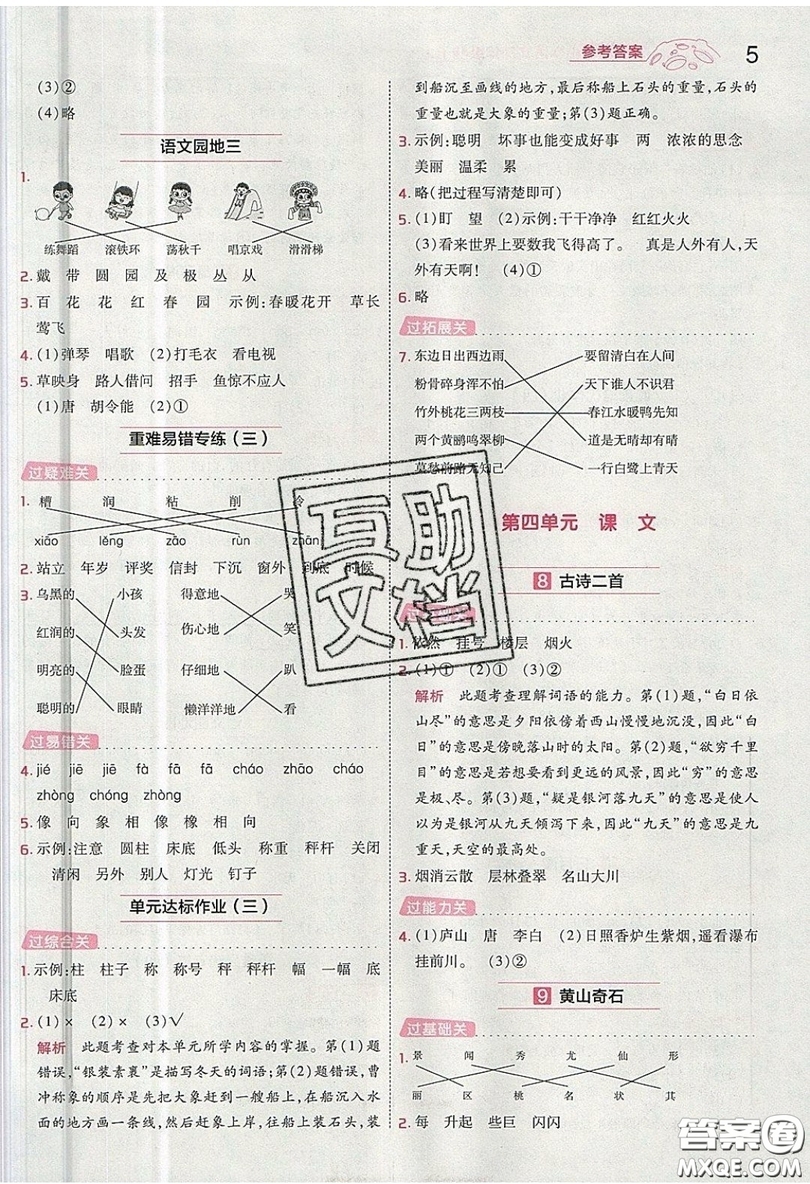 参考答案
5
(3)②
(4)略
语文园地三
1.
练舞蹈 滚铁环 荡秋千 唱京戏 滑滑梯
2. 戴 带 圆 园 及 极 丛 从
3. 百 花 花 红 春 园 示例:春暖花开 草长
莺飞
4. (1)弹琴 唱歌 (2)打毛衣 看电视
5. 草映身 路人借问 招手 鱼惊不应人
(1)唐 胡令能 (2)①
重难易错专练(三)
过疑难关
1. 糟 润 粘 削 冷
xiāo lěng zāo rùn zhān
2. 站立 年岁 评奖 信封 下沉 窗外 到底 时候
3. 乌黑的 小孩 得意地 哭
红润的 头发 伤心地 笑
明亮的 脸蛋 仔细地 趴
聪明的 眼睛 懒洋洋地 看
过易错关
4. jié jiē jiē fà fā fā cháo zhāo cháo
zhòng chóng zhòng
5. 像 向 象 相 像 橡 相 向
6. 示例:注意 圆柱 床底 低头 称重 秤杆 关闭
清闲 另外 别人 灯光 钉子
单元达标作业(三)
过综合关
1. 示例:柱 柱子 称 称号 秤 秤杆 幅 一幅 底
床底
2. (1)× (2)× (3)√
解析 此题考查对本单元所学内容的掌握。第(1)题
错误,“银装素裹”是描写冬天的词语;第(2)题错误,曹
冲称象的顺序是先把大象赶到一艘船上,在船沉入水
面的地方画一条线,然后赶象上岸,往船上装石头,装
到船沉至画线的地方,最后称船上石头的重量,石头的
重量也就是大象的重量;第(3)题正确。
3. 示例:聪明 坏事也能变成好事 两 浓浓的思念
美丽 温柔 累
4. 略(把过程写清楚即可)
5. (1)盯 望 (2)示例:干干净净 红红火火
(3)看来世界上要数我飞得高了。 真是人外有人,天
外有天啊! (4)①
6. 略
过拓展关
7. 东边日出西边雨 要留清白在人间
粉骨碎身浑不怕 天下谁人不识君
竹外桃花三两枝 春江水暖鸭先知
两个黄鹂鸣翠柳 道是无晴却有晴
莫愁前路无知己 一行白鹭上青天
第四单元 课 文
8 古诗二首
1. 依然 挂号 楼层 烟火
2. (1)① (2)① (3)②
解析 此题考查理解词语的能力。第(1)题,“白日依
山尽”的意思是夕阳依傍着西山慢慢地沉没,因此“白
日”的意思是傍晚落山时的太阳。第(2)题,“欲穷千里
目”的意思是若想要看到更远的风景,因此“穷”的意思
是极、尽。第(3)题,“疑是银河落九天”的意思是使人
以为是银河从九天倾泻下来,因此“九天”的意思是九
重天,天空的最高处。
3. 烟消云散 层林叠翠 高山大川
过能力关
4. (1)庐山 唐 李白 (2)日照香炉生紫烟,遥看瀑布
挂前川。 (3)②
9 黄山奇石
过基础关
1. 景 闻 秀 尤 仙 形
丽 区 桃 名 状 其
2. 每 升起 些巨 闪闪
互助文档
答案圈
MXQE.COM